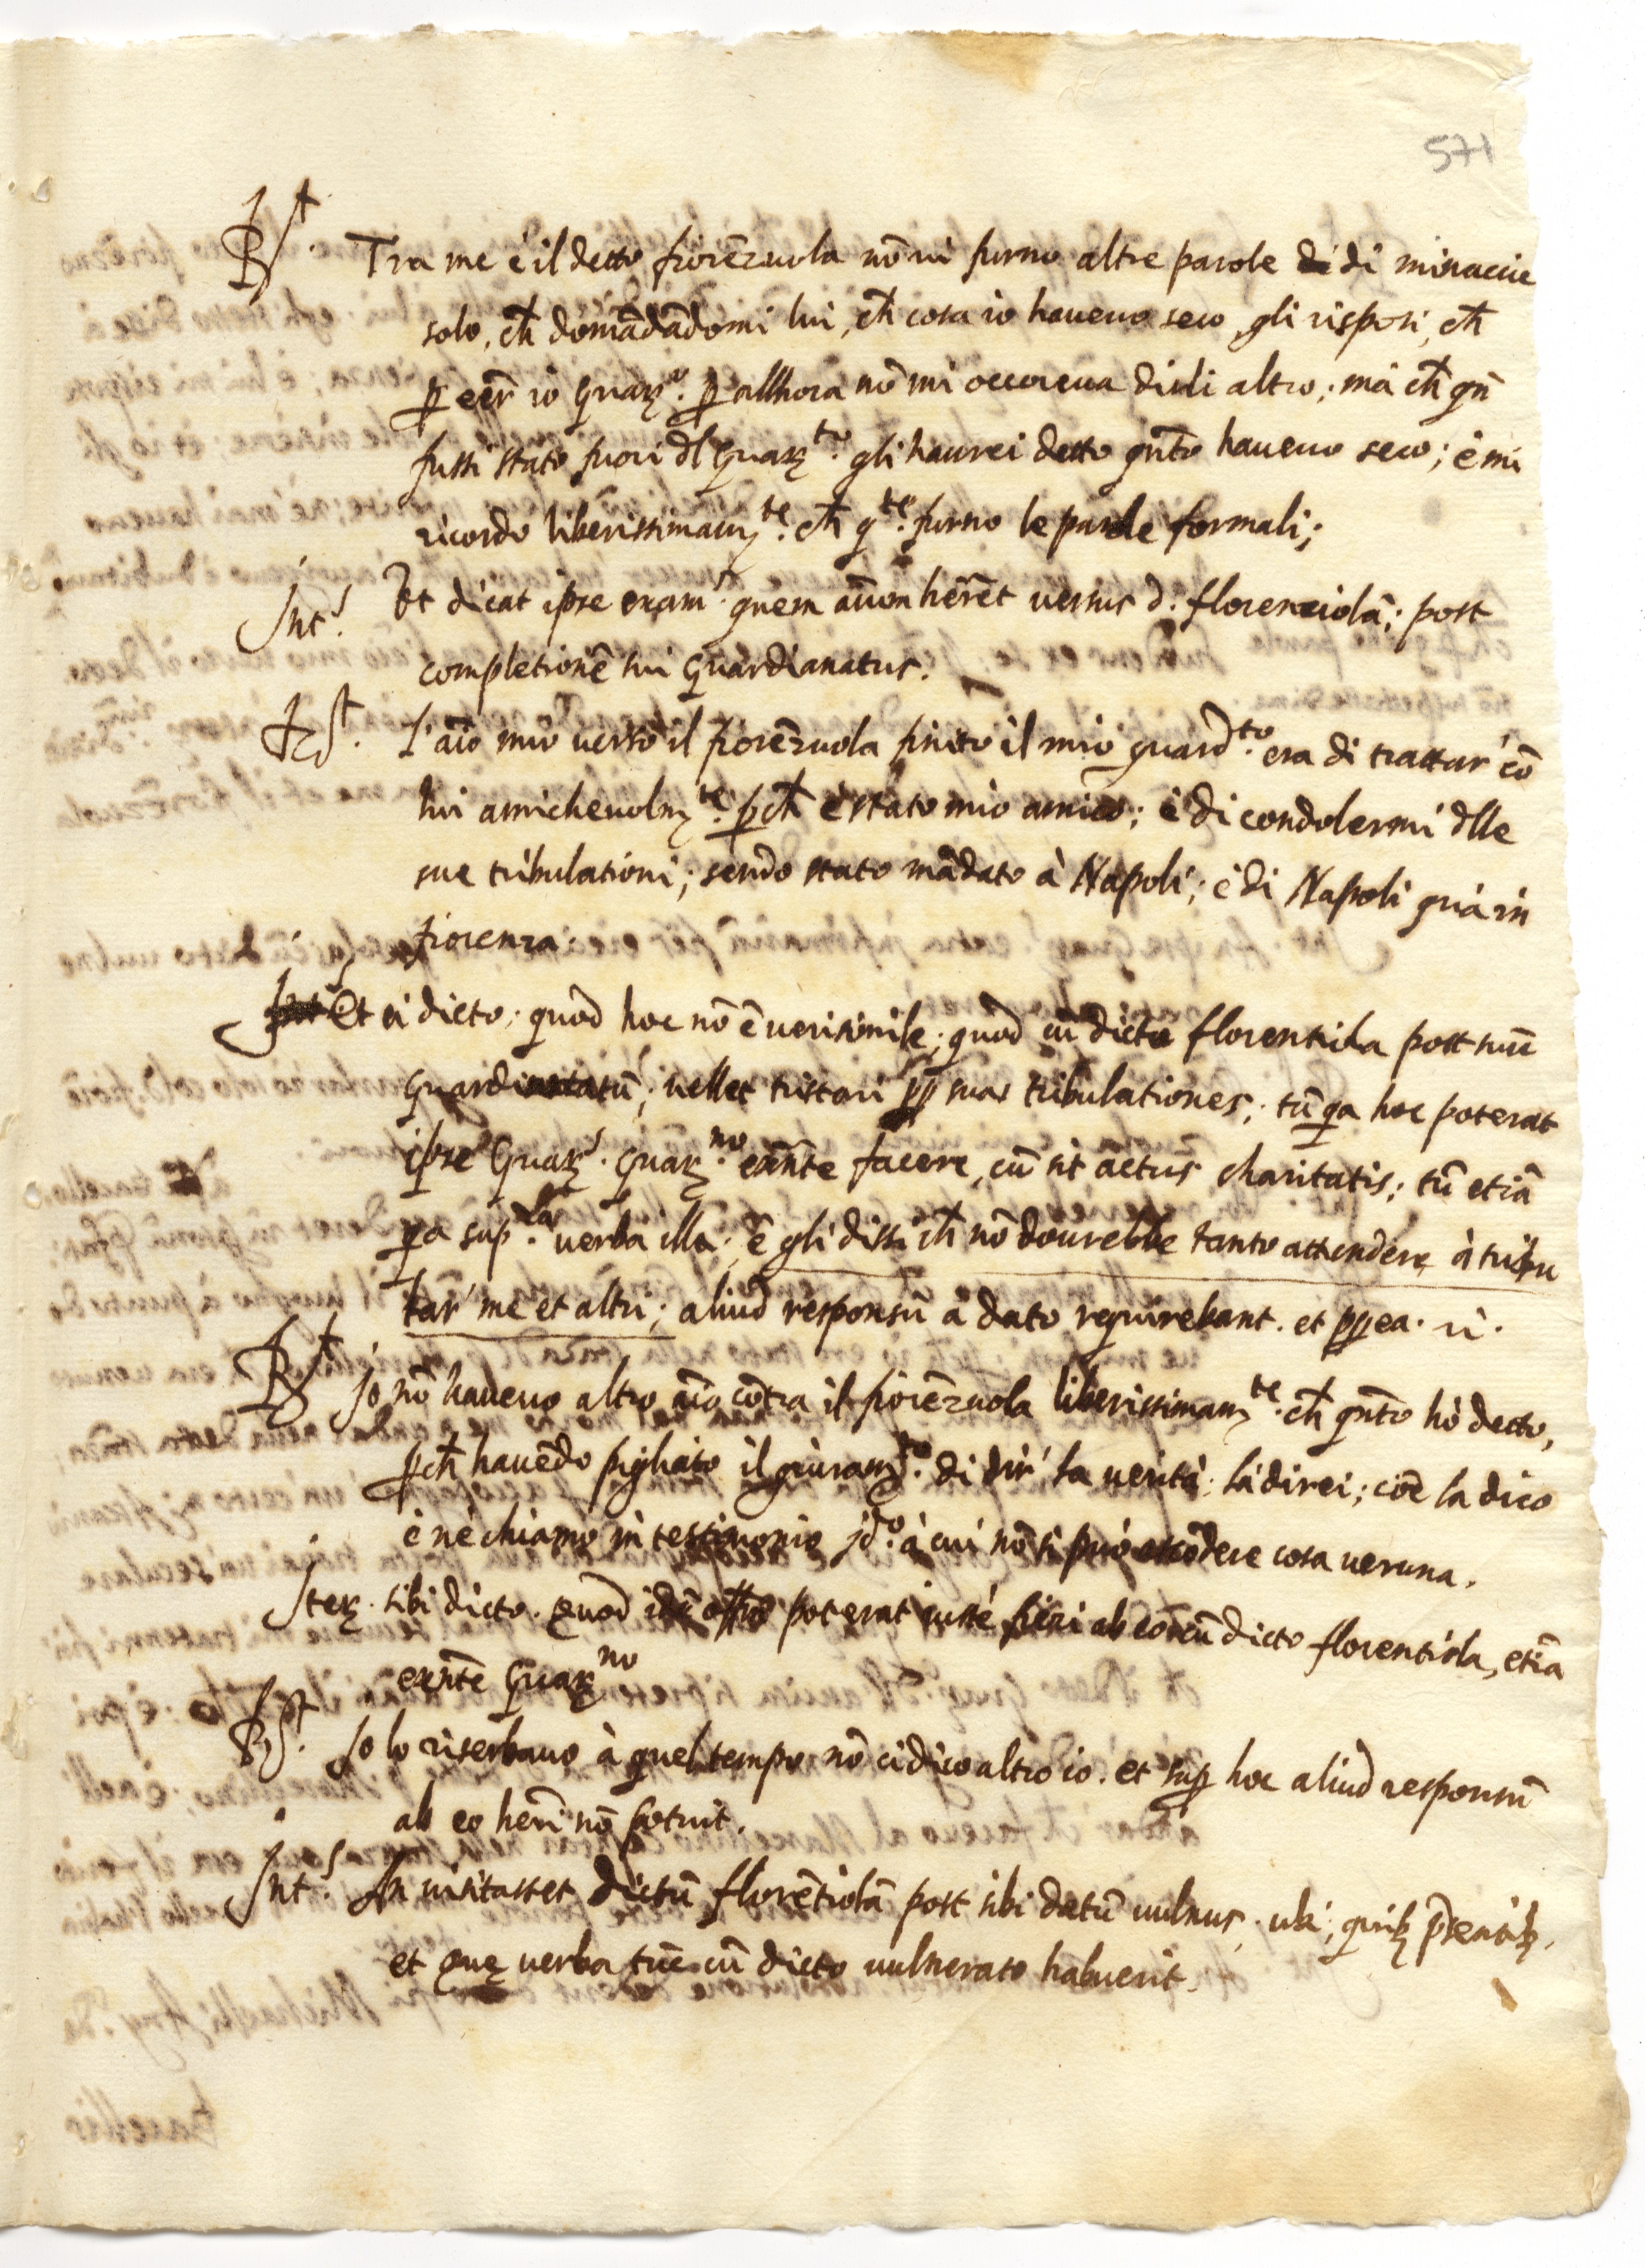 571
Rst. Tra me è il detto fiorēzuola nō vi furno altre parole di di minaccie
solo, ch̄ domādādomi lui, ch̄ cosa io haueuo seco gli risposi, ch̄
p eēr io Guarno. p allhora nō mi occoreua dirli altro; mà ch̄ qn̄
fussi stato fuori dl Guarto. gli haurei detto qn̄to haueuo seco; è mi
ricordo liberissimamte. ch̄ qte. furno le parole formali;
Ints. Ut dicat ipse exams. quem aīum hēret uersus d. florenciolā; post
completionē sui Guardianatus.
Rst. L'aīo mio uerso il fiorēzuola finito il mio guardto. era di trattar' cō
lui amicheuolmte. pch̄ è stato mio amico; è di condolermi dlle
sue tribulationi; sendo stato mādato à Napoli; è di Napoli quà in
fiorenza.
Et ei dicto; quod hoc nō ē uerisimile; quod cū dicto florentiola post suū
Guardianatū; uellet tristari pp suas tribulationes; tū qa hoc poterat
ipse Guars. Guarno. exn̄te facere, cū sit actus charitatis; tū etiā
qa supta. uerba illa; è gli dissi ch̄ nō dourebbe tanto attendere à tribu
lar' me et altri; aliud responsū à dato requirebant. et pp ea. ū.
Rst Io nō haueuo altro aīo cōtra il fiorēzuola liberissimamte. ch̄ qn̄to hò decto,
pch̄ hauēdo pigliato il giuramto. di dir' la verità; la direi; cōe la dico
è nè chiamo in testimonio Jdo. à cui nō si può ascōdere cosa ueruna.
Iter. sibi dicto. quod poterat iuste fieri ab eo cū dicto florentiola, etiā
exn̄te Guarno
Rst. Io lo riserbauo à quel tempo nō ci dico altro io. et sup hoc aliud responsū
ab eo heri nō potuit.
Ints. An uisitasset dictū florētiolā post sibi datū uulnus, ubi, quib; pn̄tib;,
et quę uerba tūc cū dicto uulnerato habuerit.